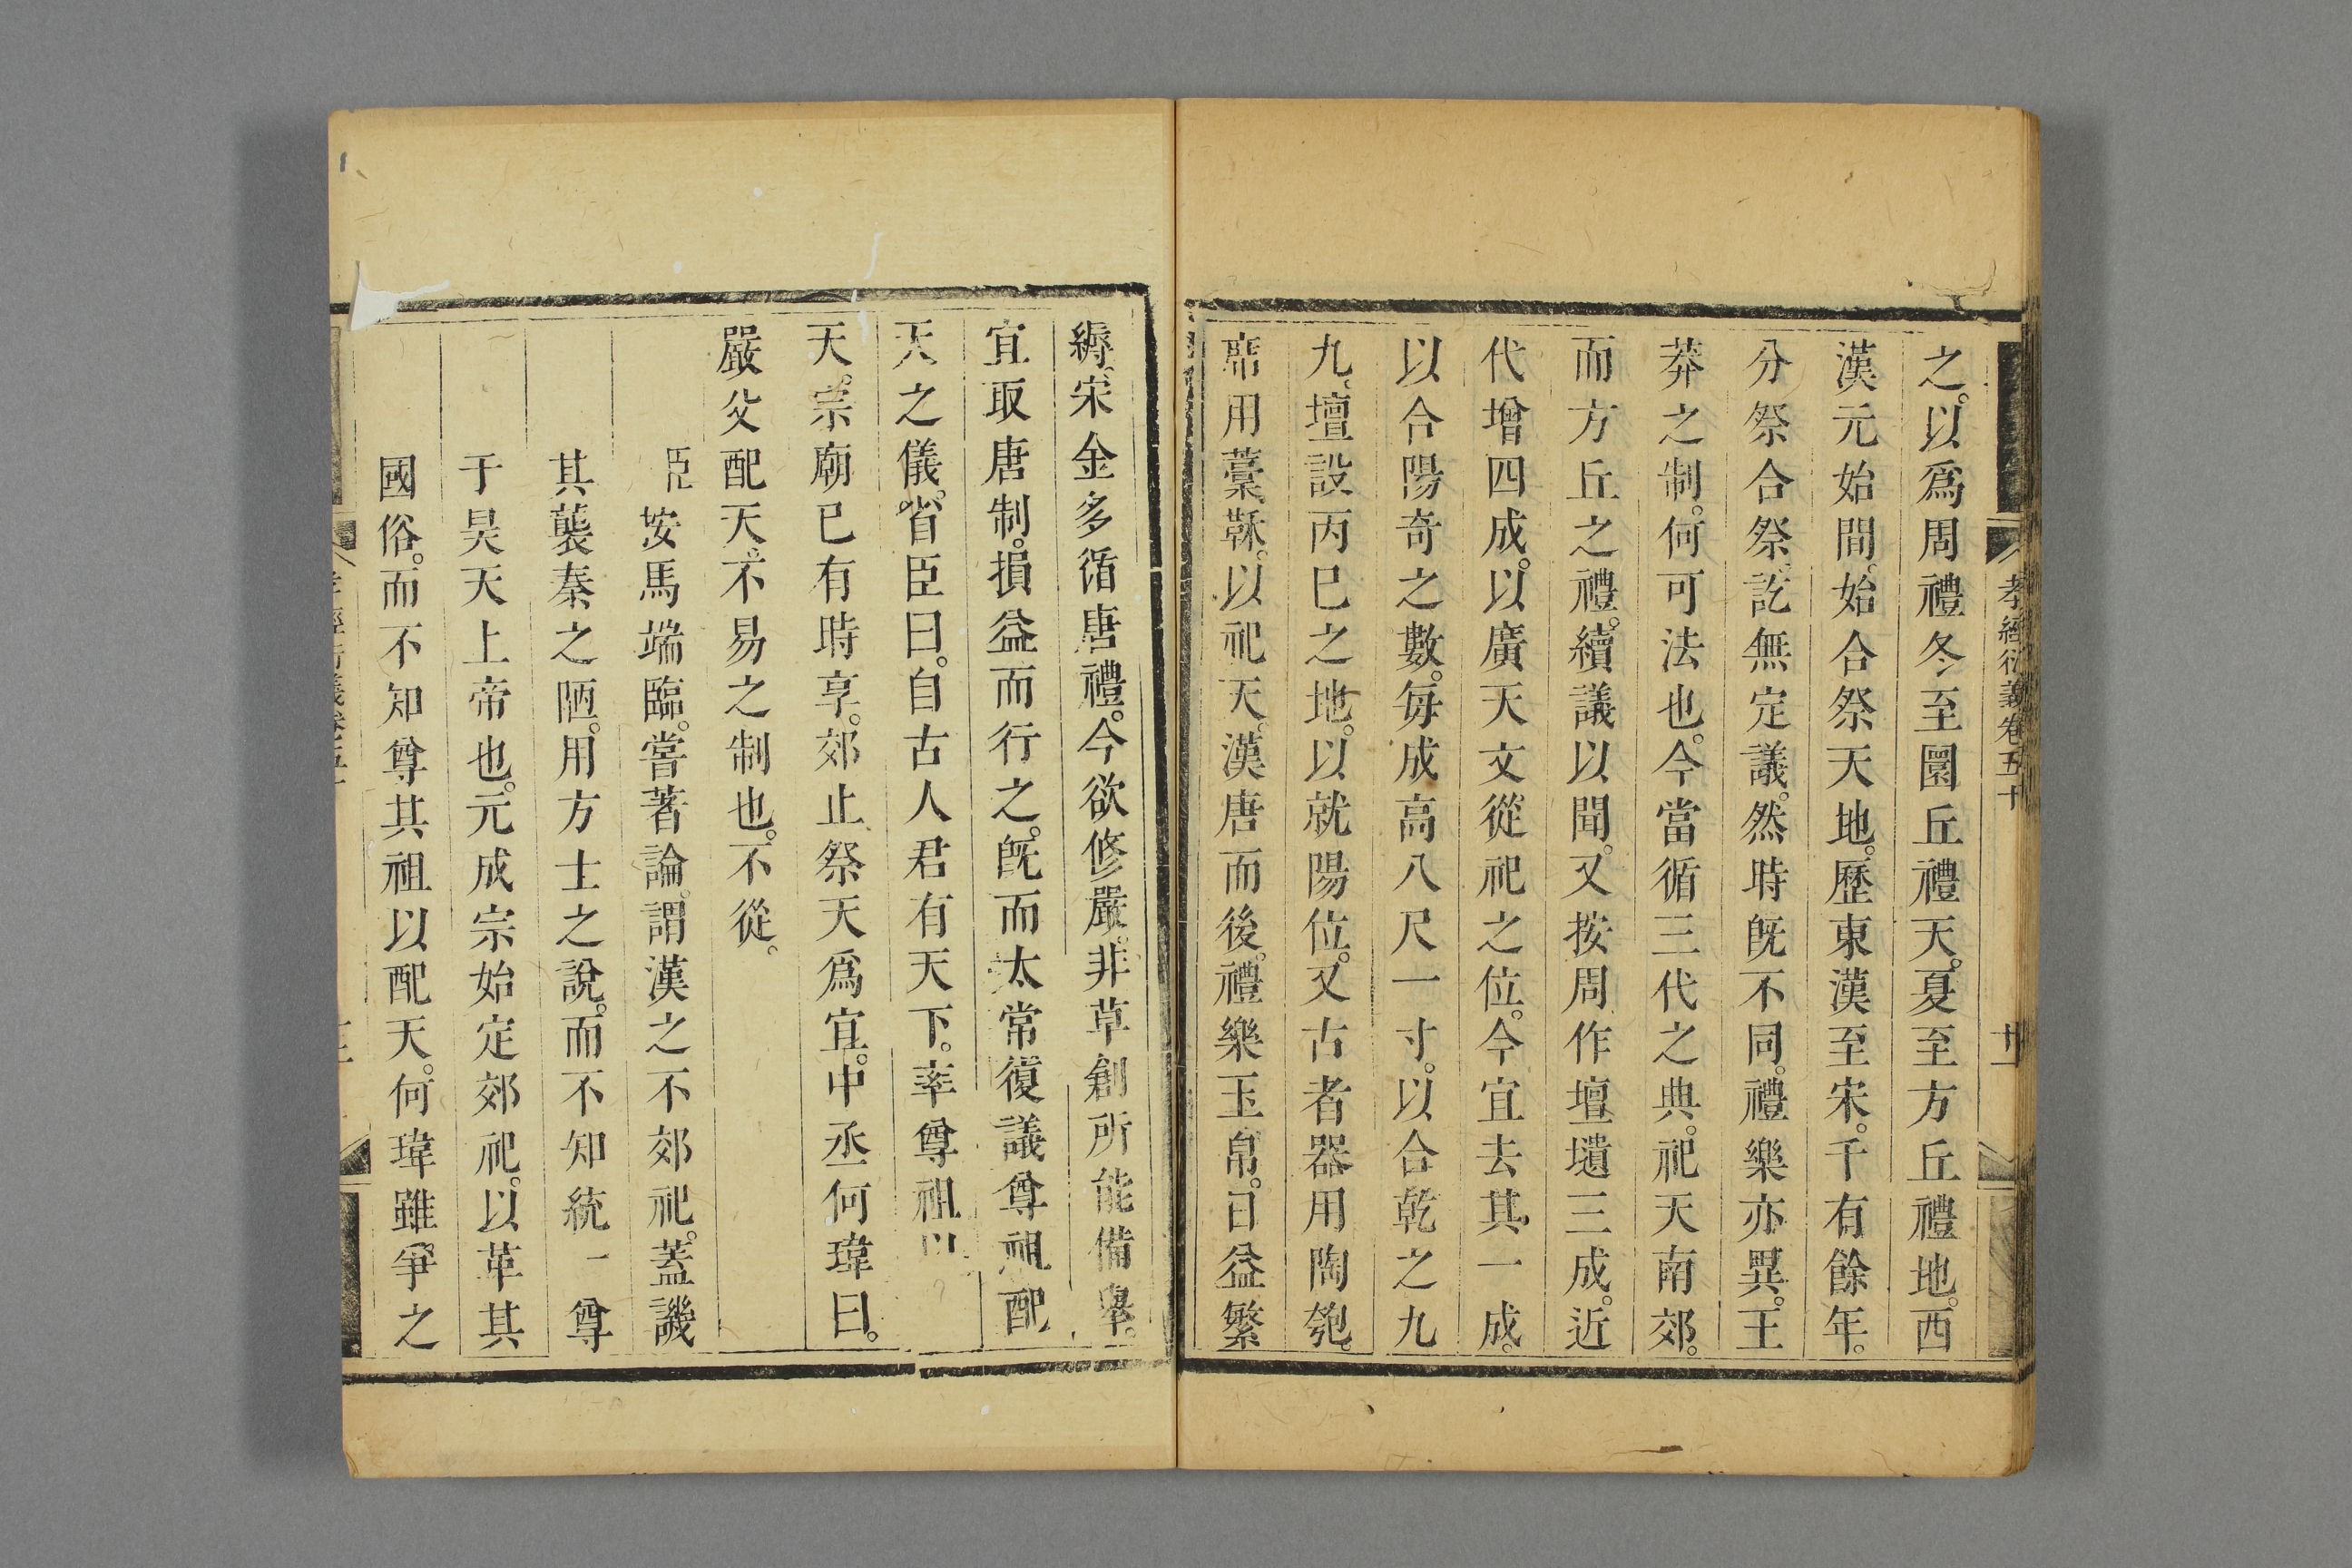 孝經衍義卷五十
十一
之。以爲周禮冬至圜丘禮天。夏至方丘禮地。西
漢元始間。始合祭天地。歷東漢至宋。千有餘年。
分祭合祭。訖無定議。然時旣不同。禮樂亦異。王
莽之制。何可法也。今當循三代之典。祀天南郊。
而方丘之禮。續議以聞。又按周作壇壝三成。近
代增四成。以廣天文從祀之位。今宜去其一成。
以合陽奇之數。每成高八尺一寸。以合乾之九
九、壇設丙巳之地。以就陽位。又古者器用陶匏。
席用藁鞂。以祀天。漢唐而後。禮樂玉帛。日益繁
縟、宋金多循唐禮。今欲修嚴。非草創所能備舉。
宜取唐制。損益而行之。旣而太常復議尊祖配
天之儀。省臣曰。自古人君有天下。率尊祖以
天。宗廟已有時享。郊止祭天爲宜。中丞何瑋曰。
嚴父配天。不易之制也。不從。
臣按馬端臨。嘗著論。謂漢之不郊祀。蓋譏
其襲秦之陋。用方士之說。而不知統一尊
于昊天上帝也。元成宗始定郊祀。以革其
國俗。而不知尊其祖以配天。何瑋雖爭之